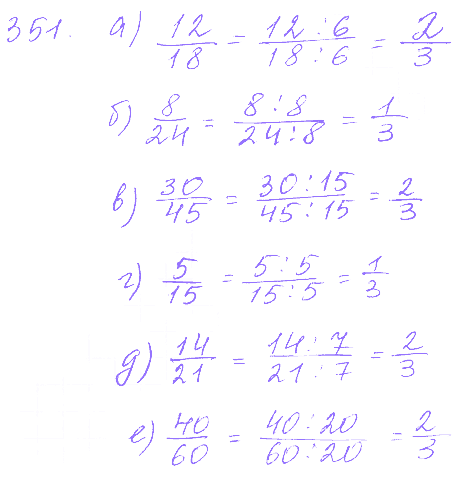 351. а) 12/18 = 12:6/18:6 = 2/3
б) 8/24 = 8:8/24:8 = 1/3
в) 30/45 = 30:15/45:15 = 2/3
г) 5/15 = 5:5/15:5 = 1/3
д) 14/21 = 14:7/21:7 = 2/3
е) 40/60 = 40:20/60:20 = 2/3